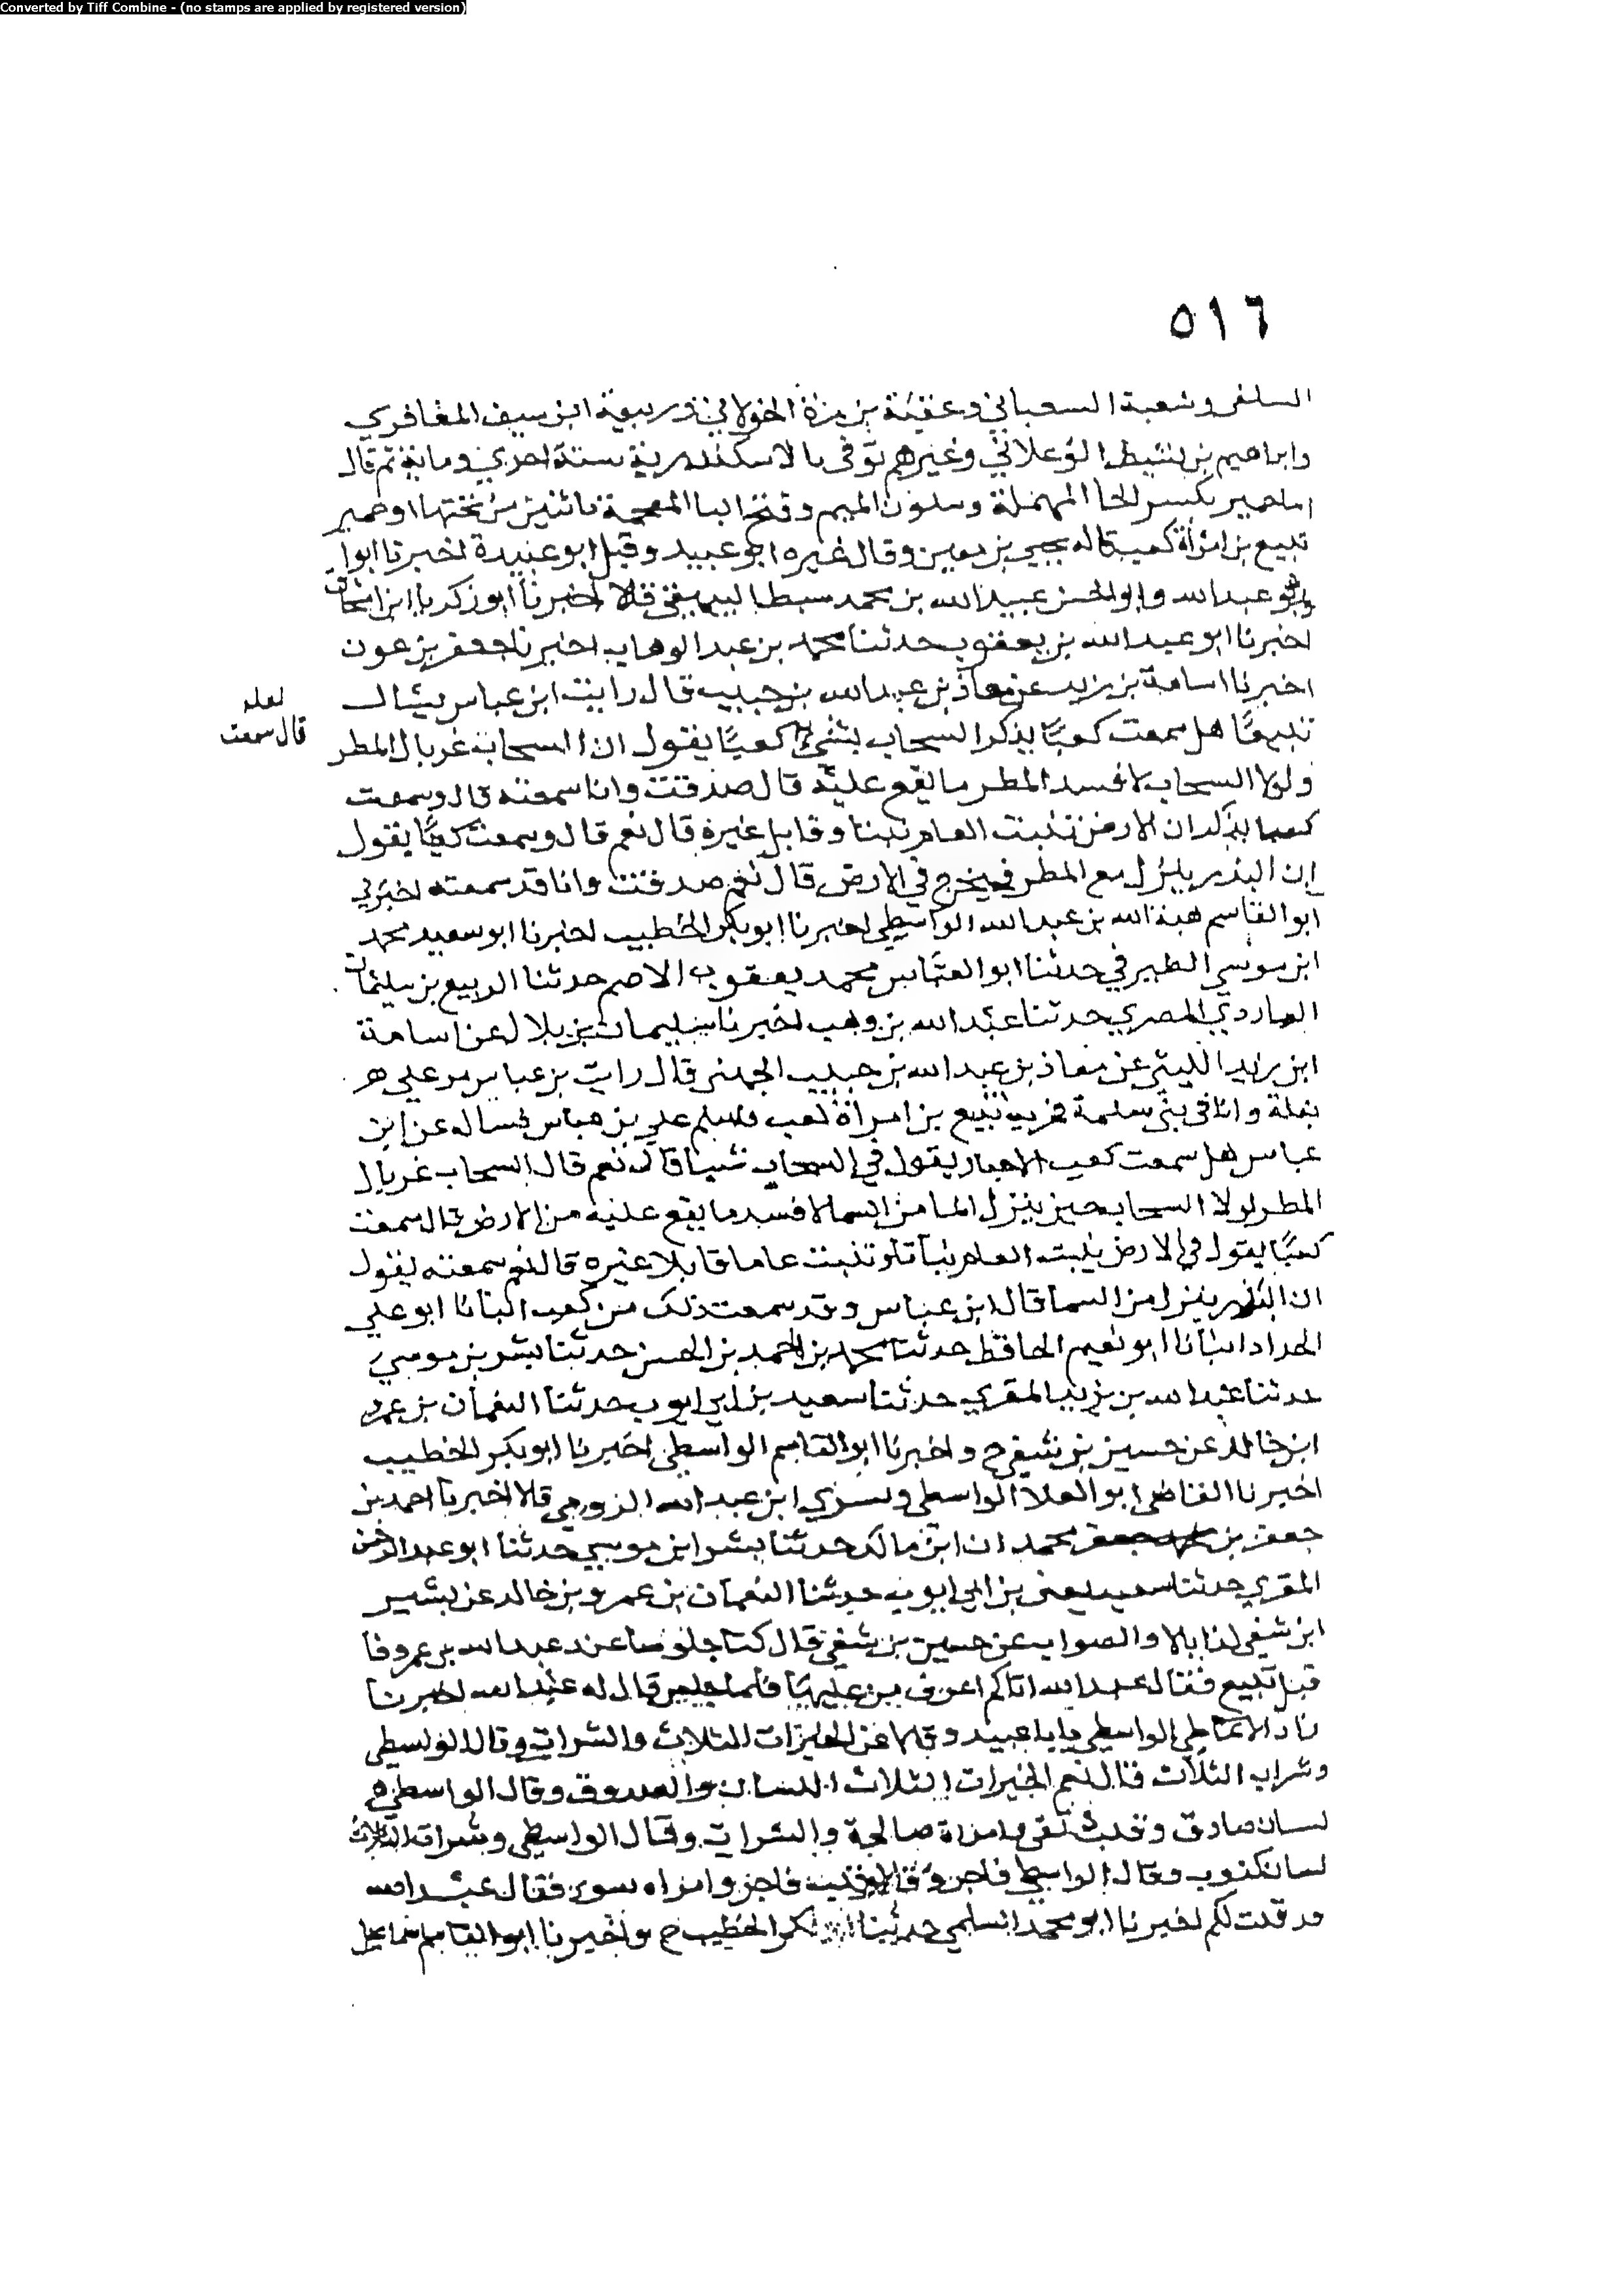 Converted by Tiff Combine - (no stamps are applied by registered version)
٥١٦
السلفى وشعبة الشعباني وعقبة بن مرة الخولاني وربيعة ابن سيف المغافري
وابراهيم بن نشيط الوعلاني وغيرهم توفى بالاسكندرية سنة احدي وماية ثم قال
اما حمير بكسر الحا المهملة وسكون الميم وفتح اليا المعجمة باثنتين من تحتها او حمير
تبيع بن امرأة كعب قاله يحيي بن معين وقال غيره ابو عبيد وقيل ابو عبيدة اخبرنا ابوا
عبدالله وابو الحسن عبيدالله بن محمد سبط البيهقي قالا اخبرنا ابو زكريا ابن اسحاق
اخبرنا ابو عبدالله بن يعقوب حدثنا محمد بن عبد الوهاب اخبرنا جعفر بن عون
اخبرنا اسامة بن يزيد عن معاذ بن عبدالله بن حبيب قال رايت ابن عباس يسال
لعله
قال سمعت
تبيعًا هل سمعت كعبًا يذكر السحاب بشي كعبًا يقول ان السحاب غربال المطر
ولولا السحاب لافسد المطر ما يقع عليه قال صدقت وانا سمعته قال وسمعت
كعبا يذكر ان الارض تنبت العام نبتا وقابل غيره قال نعم قال وسمعت كعبًا يقول
ان البذر ينزل مع المطر فيخرج في الارض قال نعم صدقت وانا قد سمعته اخبرني
ابو القاسم هبة الله بن عبدالله الواسطي اخبرنا ابو بكر الخطيب اخبرنا ابو سعيد محمد
ابن موسي الصيرفي حدثنا ابو العباس محمد يعقوب الاصم حدثنا الربيع بن سليمان
المرادي المصري حدثنا عبدالله بن وهب اخبرنا سليمان بن بلال عن اسامة
ابن زيد الليثي عن معاذ بن عبدالله بن حبيب الجهني قال رايت بن عباس مر علي
بغلة وانا في بني سلمة فمر به تبيع بن امرأة كعب فسلم علي بن عباس فساله عن ابن
عباس هل سمعت كعب الاحبار يقول في السحاب شيئا قال نعم قال السحاب غربال
المطر لولا السحاب حين ينزل الما من السما لافسد ما يقع عليه من الارض قال سمعت
كعبًا يقول في الارض ينبت العام نباتا وتنبت عاما قابلا غيره قال نعم سمعته يقول
ان البذر ينزل من السما قال ابن عباس وقد سمعت ذلك من كعب انبانا ابو علي
الحداد انبانا ابو نعيم الحافظ حدثنا محمد بن احمد بن الحسن حدثنا بشر بن موسي
حدثنا عبدالله بن يزيد المقري حدثنا سعيد بن ابي ايوب حدثنا النعمان بن عمرو
ابن خالد عن حسين بن شفي ح واخبرنا ابو القاسم الواسطي اخبرنا ابو بكر الخطيب
اخبرنا القاضي ابو العلا الواسطي وبشري ابن عبدالله الرومي قالا اخبرنا احمد بن
جعفر بن محمد ان ابن مالك حدثنا بشر ابن موسي حدثنا ابو عبد الرحمن
المقري حدثنا سعيد يعني بن ابي ايوب حدثنا النعمان بن عمرو بن خالد عن بشير
ابن شفي لذا بالا والصواب عن حسين بن شفي قال كنا جلوسا عند عبدالله بن عمرو فا
قبل تبيع فقال عبدالله اتاكم اعرف من عليها فلما جلس قال له عبدالله اخبرنا
زاد الانماطي الواسطي يا ابا عبيد وقالا عن الخيرات الثلاث والشرات وقال الواسطي
وشرات الثلاث قال نعم الخيرات الثلاث اللسان والصدوق وقال الواسطي
لسان صادق وقلب تقي وامراة صالحة والشرات وقال الواسطي وشرات الثلاث
لسان كذوب وقال الواسطي فاجر وقالا وقلب فاجر وامراه سوء فقال عبدالله
قد قلت لكم اخبرنا ابو محمد السلمي حدثنا بكر الخطيب ح واخبرنا ابو القاسم اسماعيل